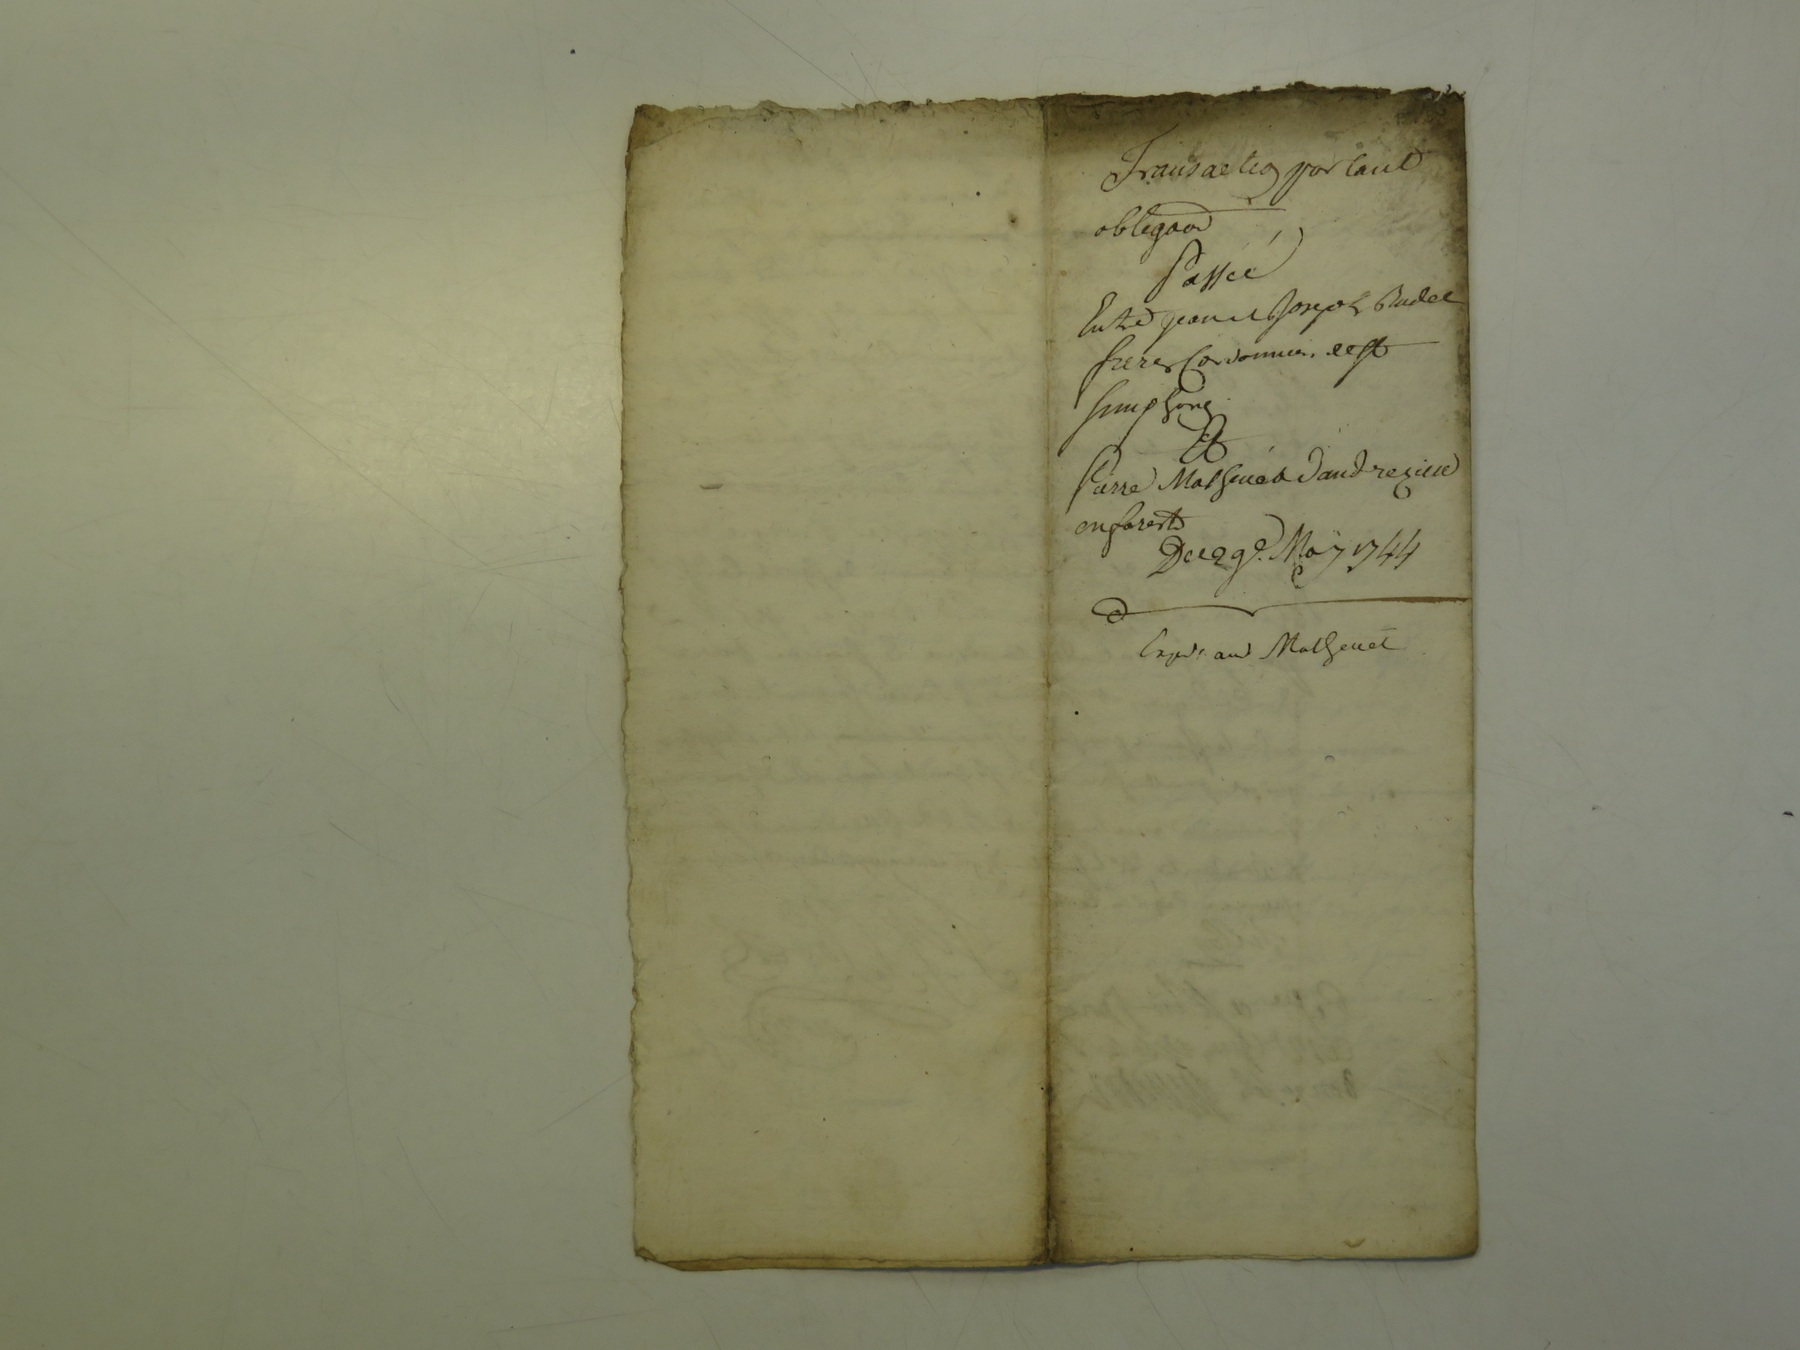 Transaction portant
obligaon
Passée
Entre jean et Joseph Rudel
freres Cordonnier de St
simphorie
Et
Pierre Mathevet d'andrezieu
en forest
Du 29e. May 1744
Expd. aud Mathevet